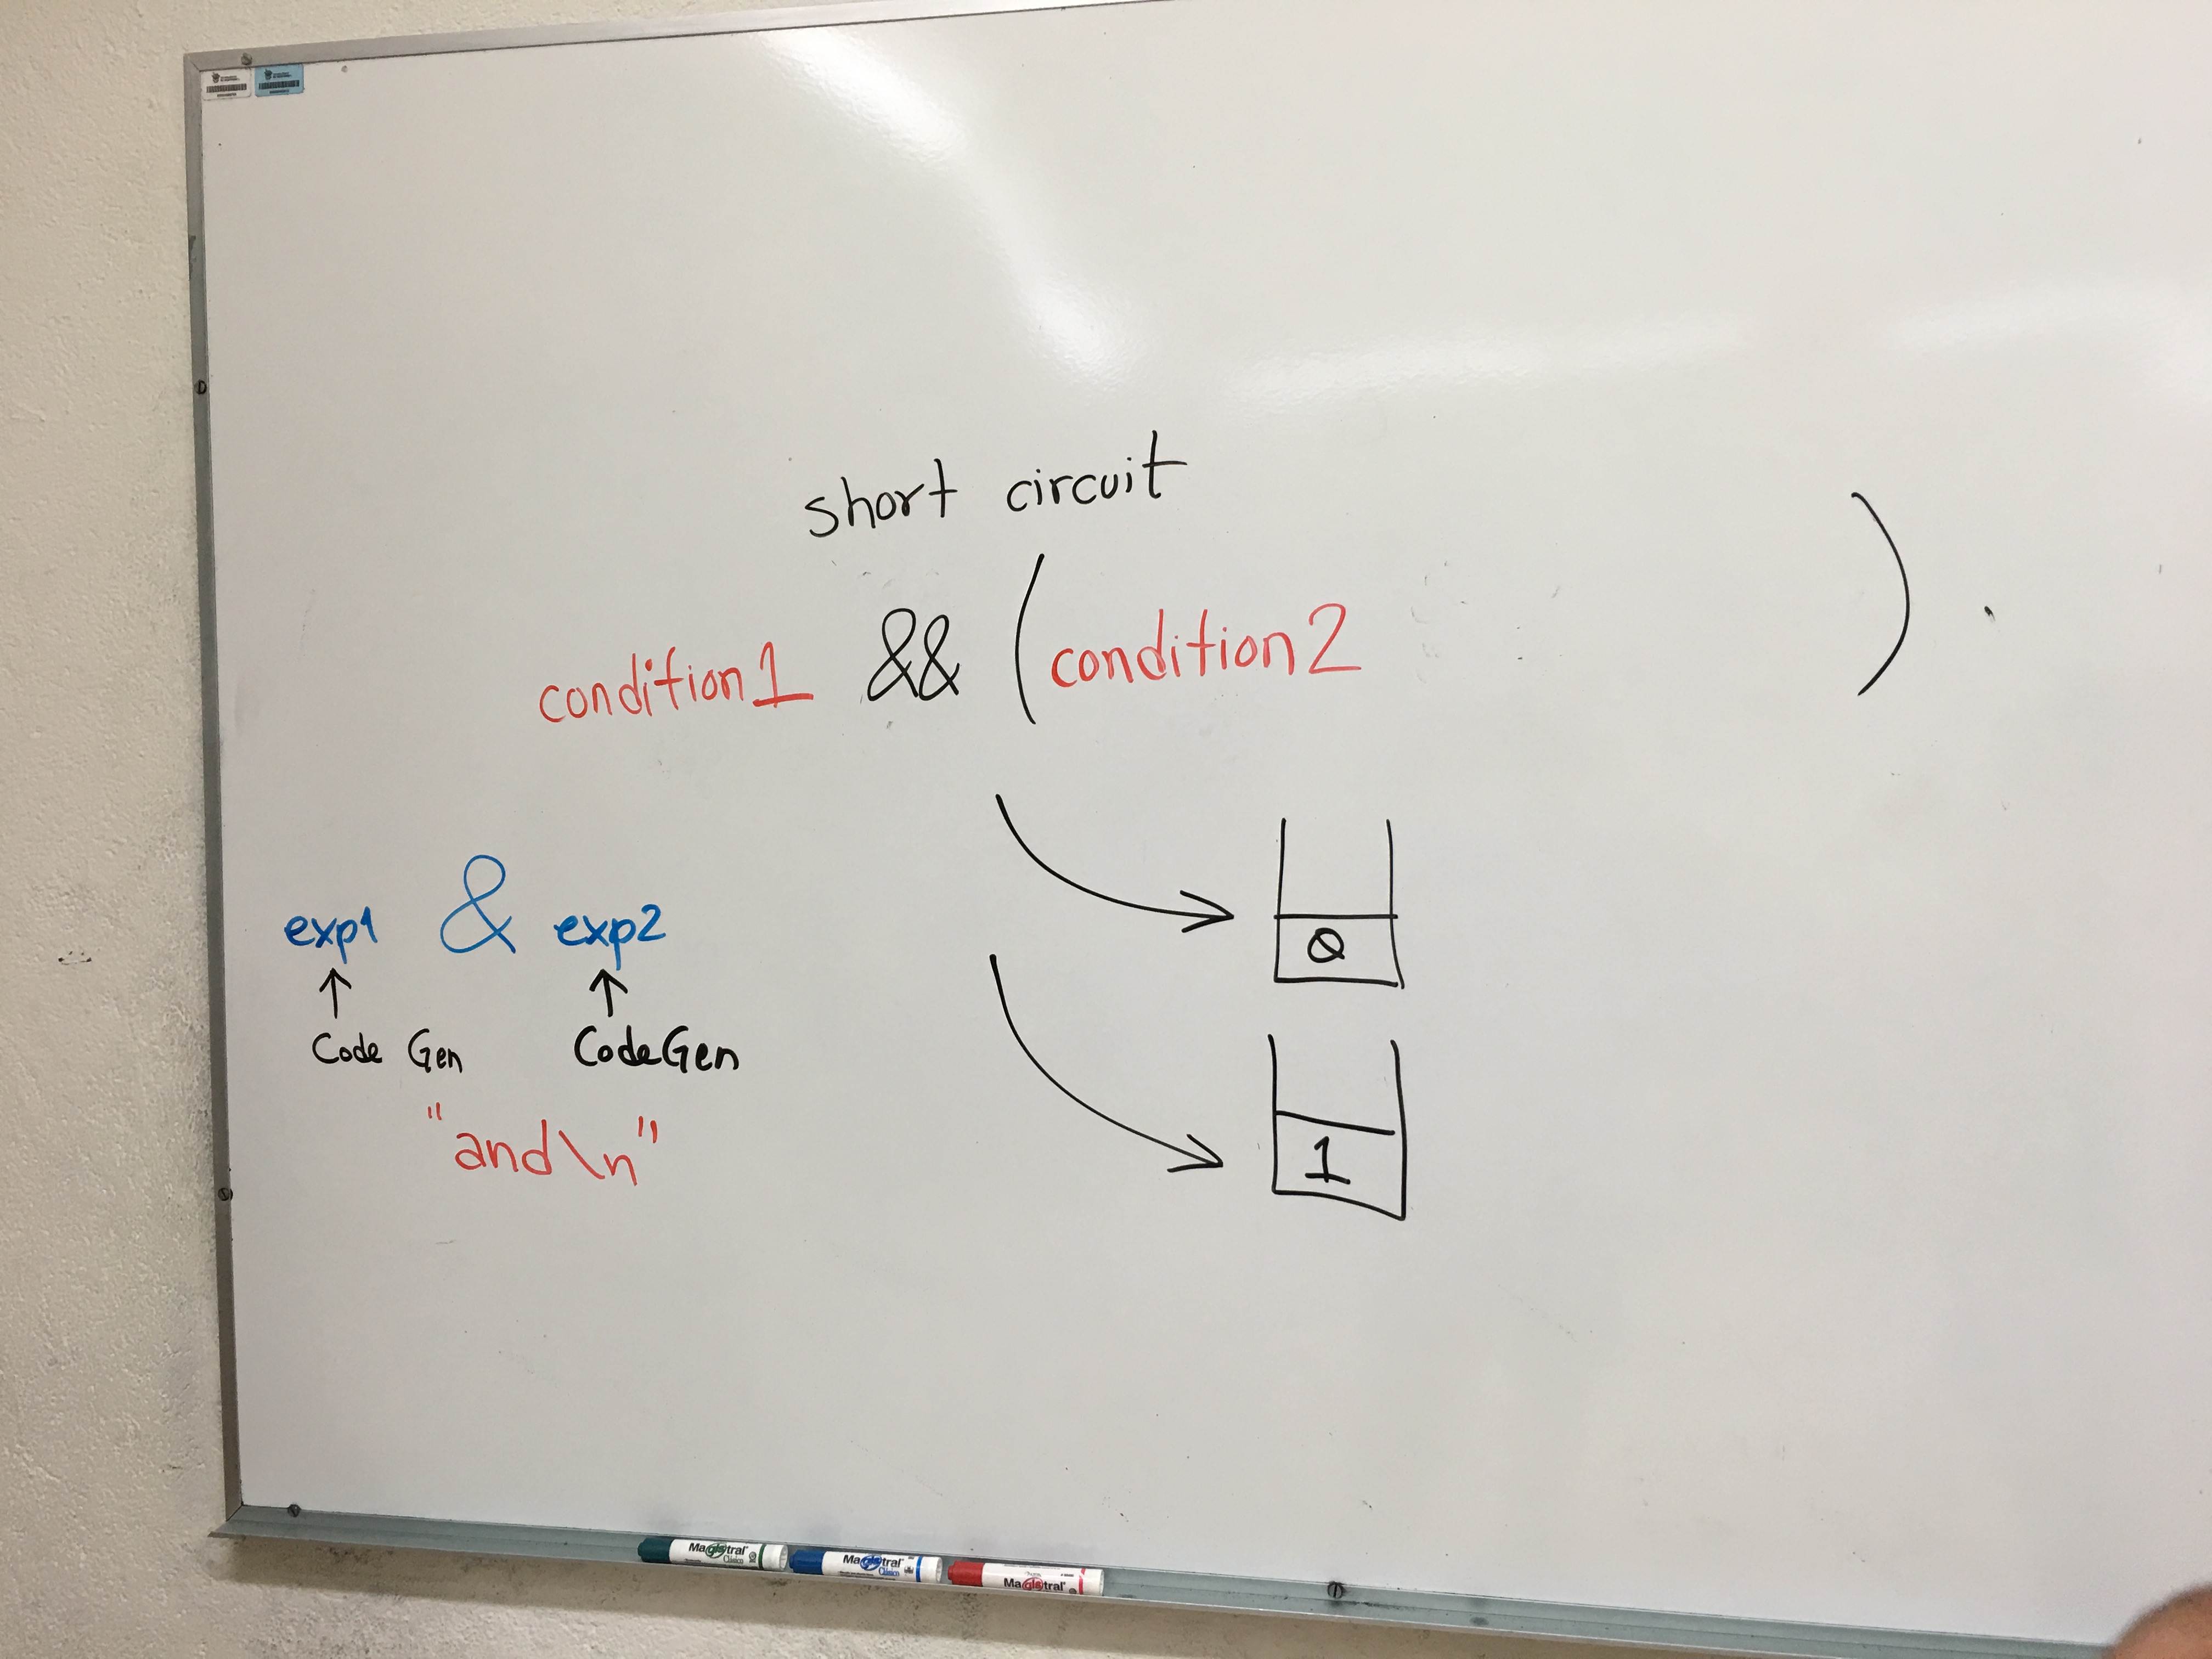 short circuit
condition1 && ( condition2 )
exp1 & exp2
↑ ↑
Code Gen CodeGen
"and\n"
0
1
Magistral Clásico Magistral Clásico Magistral